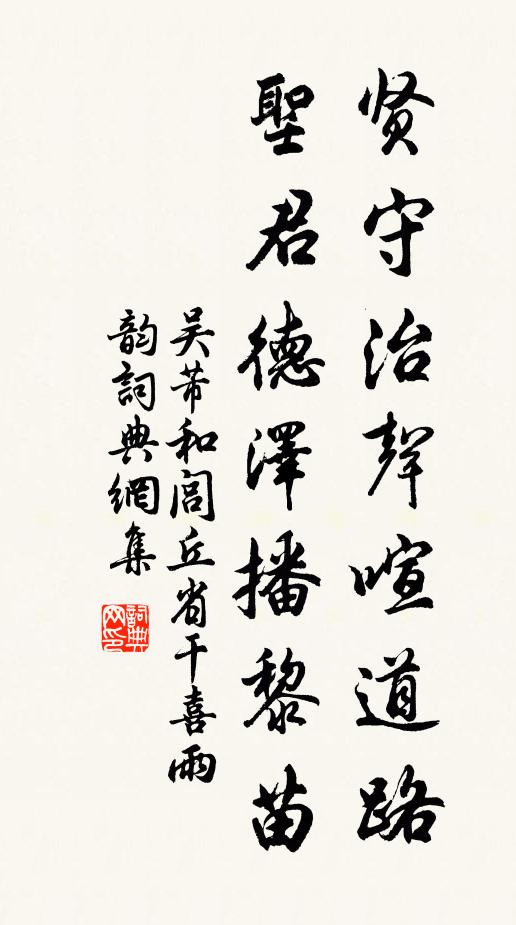 贤守治聲喧道路
聖君德澤播黎苗
吴芾和閻丘省干喜雨
韵詞典網集
詞典
网印